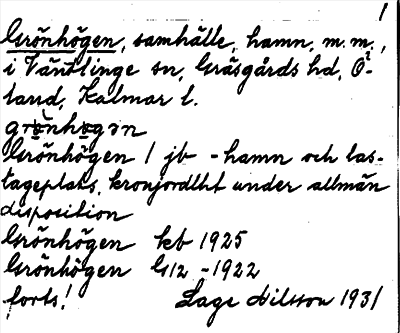 1
Grönhögen, samhälle, hamn, m.m.,
i Ventlinge sn, Gräsgårds hd, Ö-
land, Kalmar l.
Grönhögen 1 jb - hamn och las-
tageplats, kronojordlht under allmän
disposition
Grönhögen kb 1925
Grönhögen G12 - 1922
forts! Lage Nilsson 1931